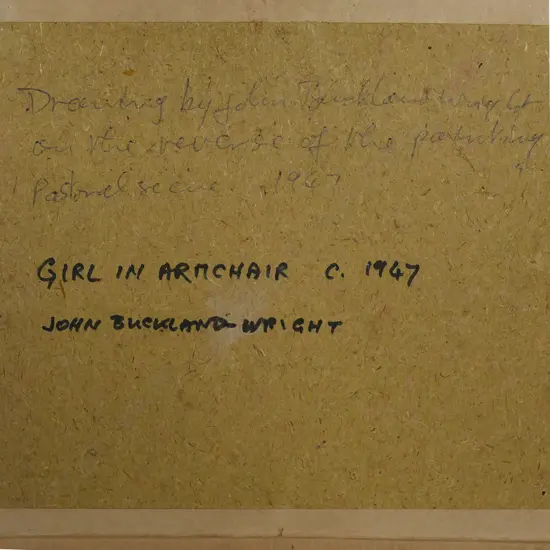 Drawing by John Buckland Wright
on the reverse of the painting
Pastoral scene. 1947
GIRL IN ARMCHAIR C. 1947
JOHN BUCKLAND-WRIGHT